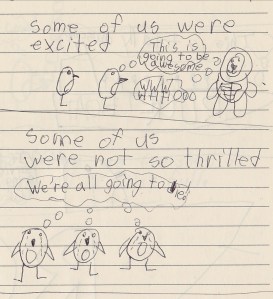 some of us were
excited
This is
going to be
awesome
WWW
WHHOOO
some of us
were not so thrilled
We're all going to die!